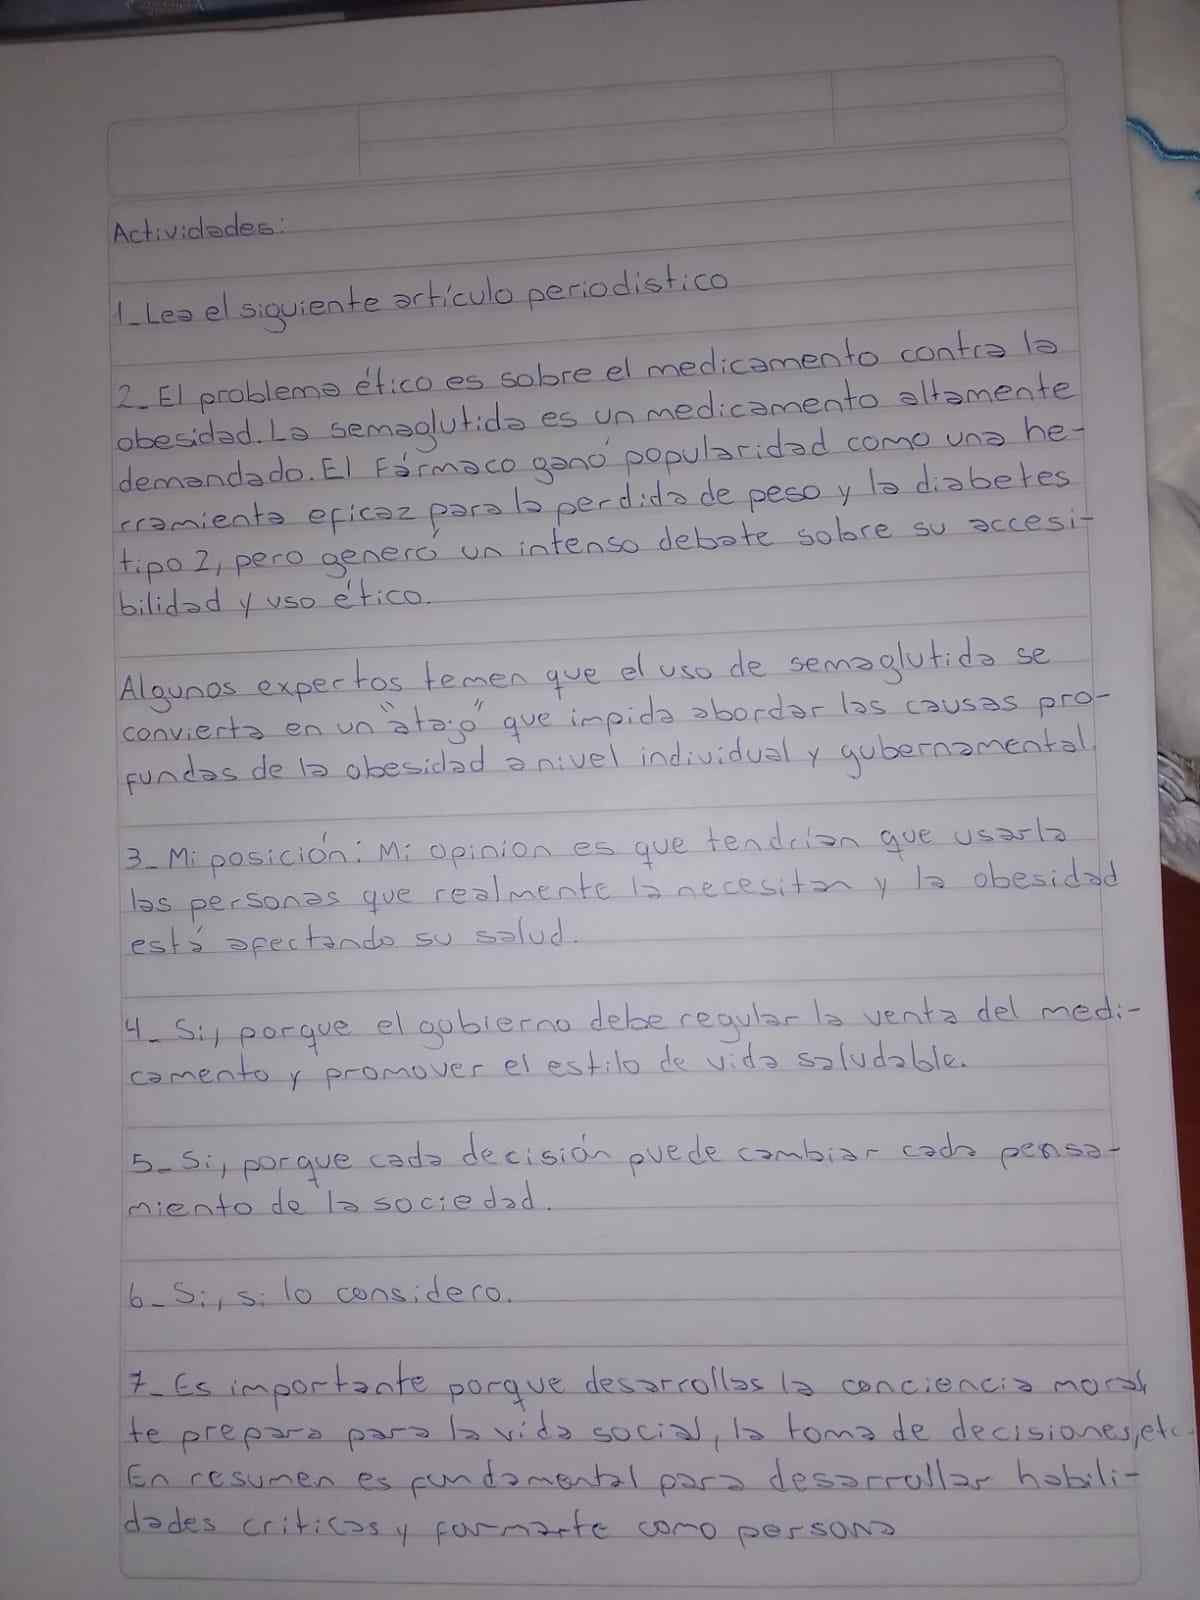 Actividades:
1_ Lea el siguiente artículo periodistico
2_ El problema ético es sobre el medicamento contra la
obesidad. La semaglutida es un medicamento altamente
demandado. El Fármaco ganó popularidad como una he-
rramienta eficaz para la perdida de peso y la diabetes
tipo 2, pero generó un intenso debate sobre su accesi-
bilidad y uso ético.
Algunos expertos temen que el uso de semaglutida se
convierta en un "atajo" que impida abordar las causas pro-
fundas de la obesidad a nivel individual y gubernamental
3_ Mi posición: Mi opinion es que tendrían que usarla
las personas que realmente la necesitan y la obesidad
está afectando su salud.
4_ Si, porque el gobierno debe regular la venta del medi-
camento y promover el estilo de vida saludable.
5_ Si, porque cada decisión puede cambiar cada pensa-
miento de la sociedad.
6_ Si, si lo considero.
7_ Es importante porque desarrollas la conciencia moral,
te prepara para la vida social, la toma de decisiones, etc.
En resumen es fundamental para desarrollar habili-
dades criticas y formarte como persona